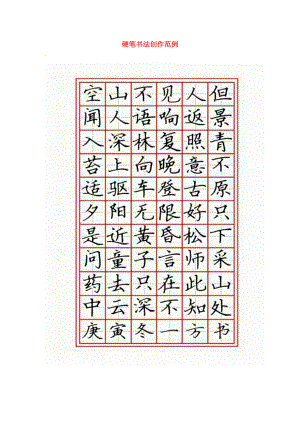 硬笔书法创作范例
空山不见人但
闻人语响返景
入深林复照青
苔上向晚意不
适驱车登古原
夕阳无限好只
是近黄昏松下
问童子言师采
药去只在此山
中云深不知处
庚寅冬一方书